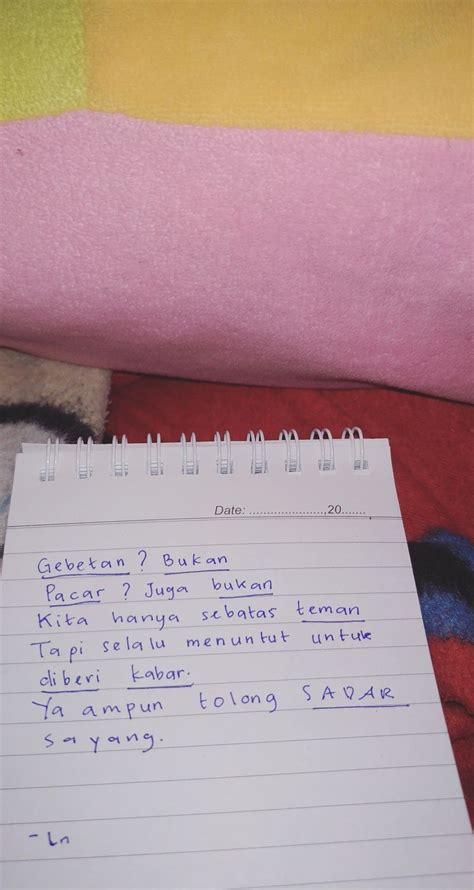 Date: ......................,20.......
Gebetan ? Bukan
Pacar ? Juga bukan
Kita hanya sebatas teman
Tapi selalu menuntut untuk
diberi kabar.
Ya ampun tolong SADAR
sayang.
- Ln